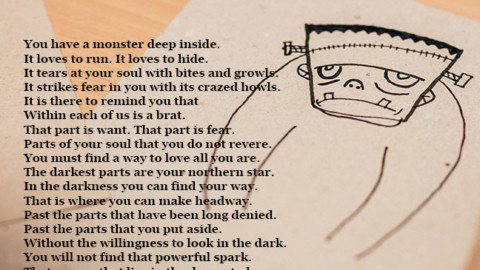 You have a monster deep inside.
It loves to run. It loves to hide.
It tears at your soul with bites and growls.
It strikes fear in you with its crazed howls.
It is there to remind you that
Within each of us is a brat.
That part is want. That part is fear.
Parts of your soul that you do not revere.
You must find a way to love all you are.
The darkest parts are your northern star.
In the darkness you can find your way.
That is where you can make headway.
Past the parts that have been long denied.
Past the parts that you put aside.
Without the willingness to look in the dark.
You will not find that powerful spark.